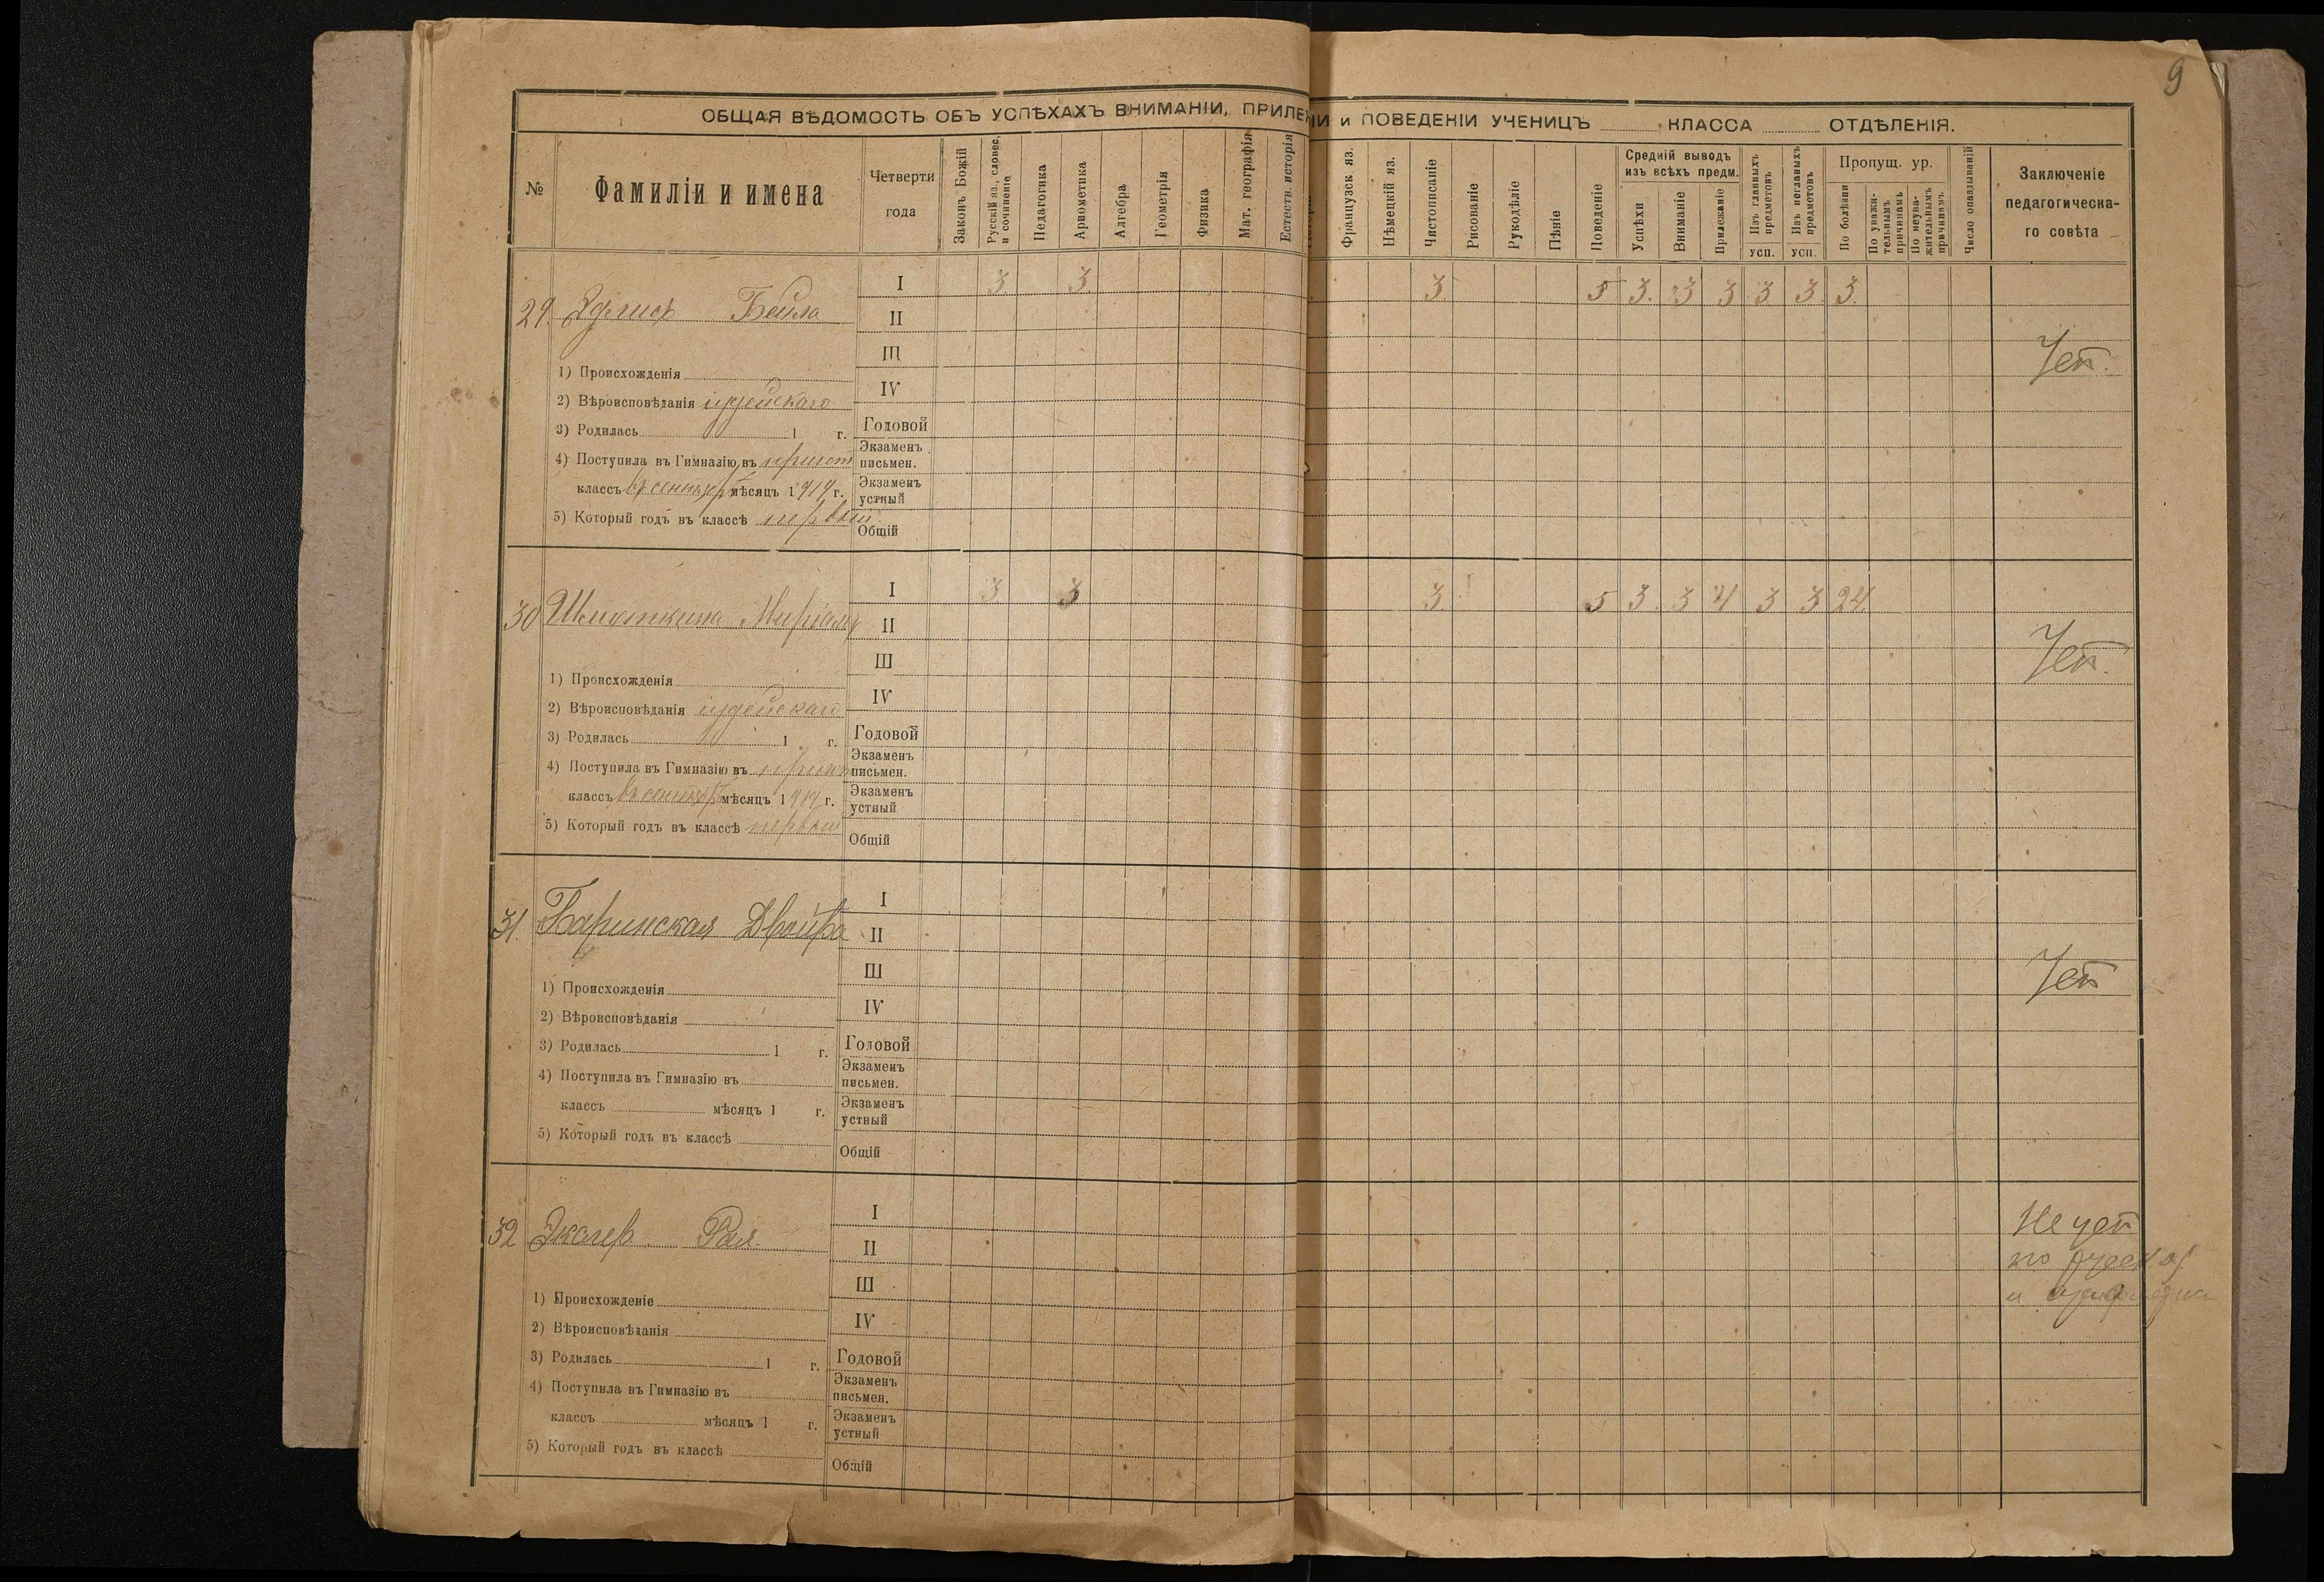 9
ОБЩАЯ ВѢДОМОСТЬ ОБЪ УСПѢХАХЪ ВНИМАНІИ, ПРИЛЕЖ
НІИ и ПОВЕДЕНІИ УЧЕНИЦЪ КЛАССА ОТДѢЛЕНІЯ.
№
Фамиліи и имена
Четверти
года
Законъ Божій
Русскій яз., словес.
и сочиненіе
Педагогика
Ариѳметика
Алгебра
Геометрія
Физика
Мат. географія
Естеств. исторія
Французск яз.
Нѣмецкій яз.
Чистописаніе
Рисованіе
Рукодѣліе
Пѣніе
Поведеніе
Средній выводъ
изъ всѣхъ предм.
Успѣхи
Вниманіе
Прилежаніе
Изъ главныхъ
предметовъ
усп.
Изъ неглавныхъ
предметовъ
усп.
Пропущ. ур.
По болѣзни
По уважи-
тельнымъ
причинамъ
По неува-
жительнымъ
причинамъ
Число опаздываній
Заключеніе
педагогическа-
го совѣта
29. Бейла
I 3 3. 3. 5 3. 3 3 3 3 3.
II
III
IV
Годовой
Экзаменъ
письмен.
Экзаменъ
устный
Общій
1) Происхожденія
2) Вѣроисповѣданія иудейскаго
3) Родилась 1 г.
4) Поступила въ Гимназію въ пригот
классъ въ сентябрѣ мѣсяцъ 1919 г.
5) Который годъ въ классѣ первый
30
I 3. 3 3. 5 3. 3 4 3 3 24.
II
III
IV
Годовой
Экзаменъ
письмен.
Экзаменъ
устный
Общій
1) Происхожденія
2) Вѣроисповѣданія иудейскаго
3) Родилась 1 г.
4) Поступила въ Гимназію въ пригот
классъ въ сентябрѣ мѣсяцъ 1919 г.
5) Который годъ въ классѣ первый
31. Двойра
I
II
III
IV
Годовой
Экзаменъ
письмен.
Экзаменъ
устный
Общій
1) Происхожденія
2) Вѣроисповѣданія
3) Родилась 1 г.
4) Поступила въ Гимназію въ
классъ мѣсяцъ 1 г.
5) Который годъ въ классѣ
32 Рая.
I
II
III
IV
Годовой
Экзаменъ
письмен.
Экзаменъ
устный
Общій
1) Происхожденіе
2) Вѣроисповѣданія
3) Родилась 1 г.
4) Поступила въ Гимназію въ
классъ мѣсяцъ 1 г.
5) Который годъ въ классѣ
Не
по
и